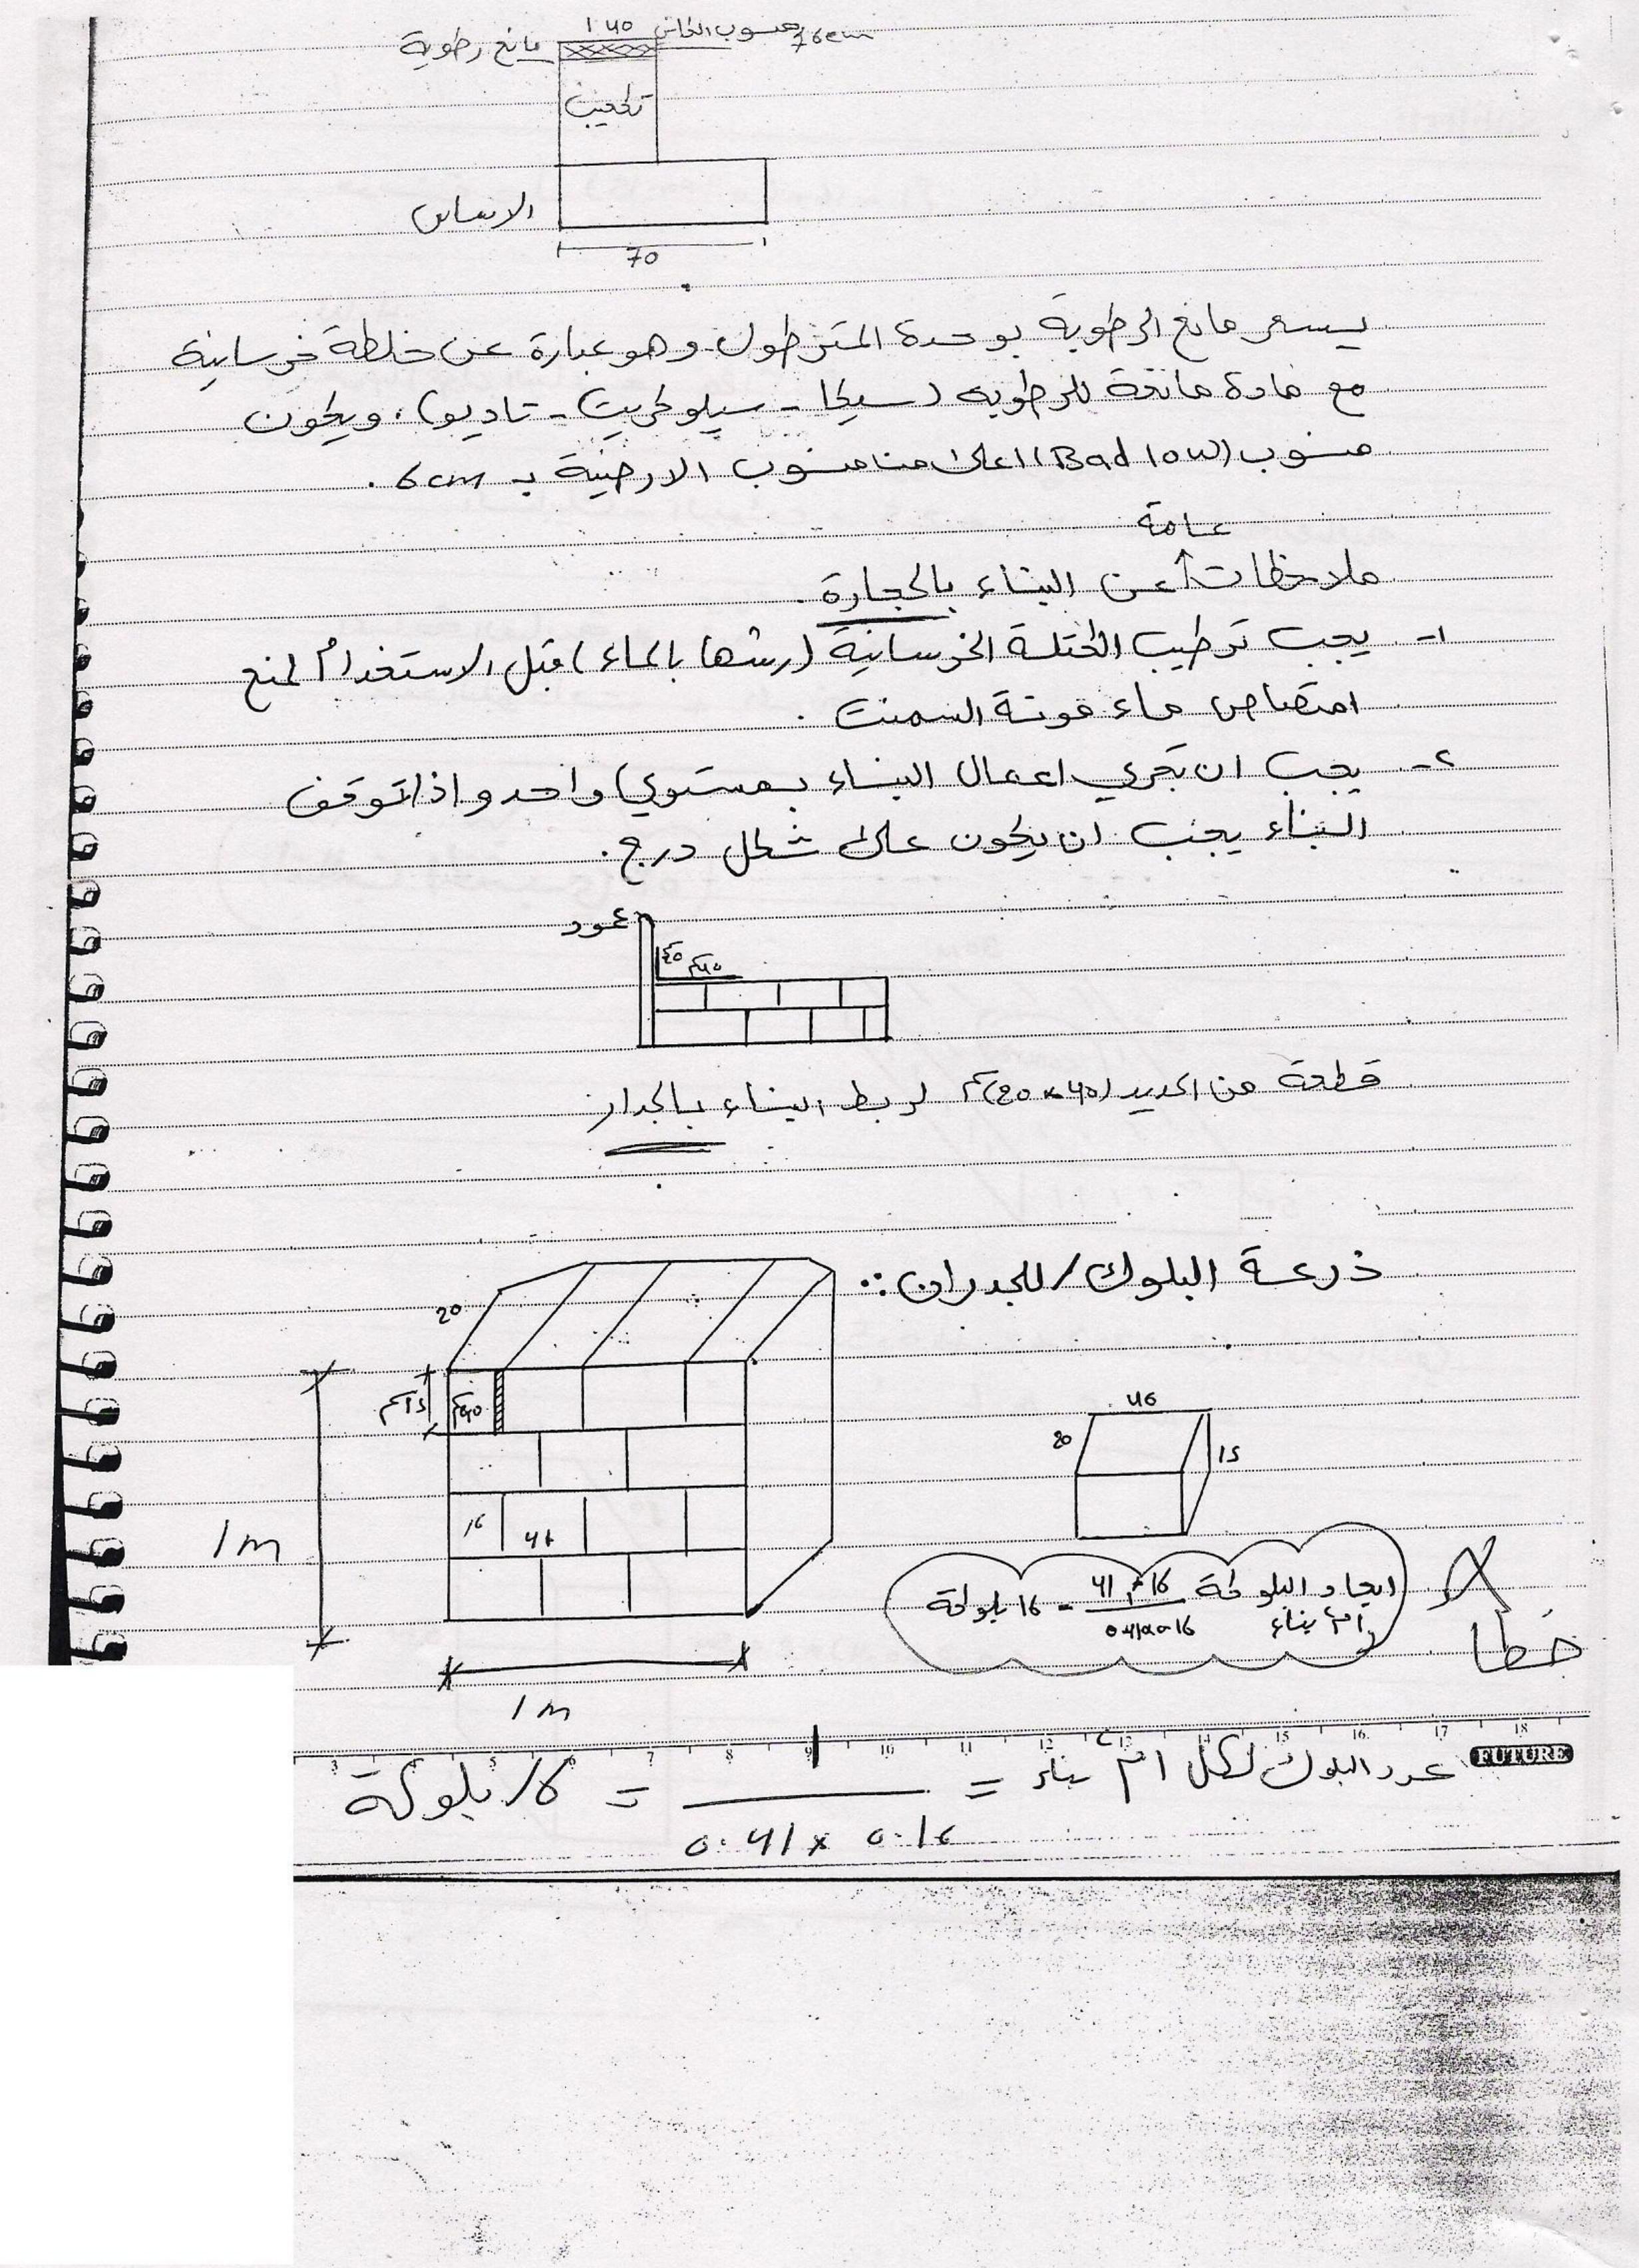 مانع رطوبة
40
منسوب
6cm
تكعيب
الاساس
70
يسعر مانع الرطوبة بوحدة المتر طول وهو عبارة عن خلطة خرسانية
مع مادة مانعة للرطوبه (سيكا - سيلوكريت - تاديو) ويكون
منسوب (Bad low) اعلى من منسوب الارضية بـ 6cm .
عامة
ملاحظات عن البناء بالحجارة .
١- يجب ترطيب الكتلة الخرسانية (رشها بالماء) قبل الاستخدام لمنع
امتصاص ماء مونة السمنت .
٢- يجب ان تجري اعمال البناء بمستوي واحد واذا توقف
البناء يجب ان يكون على شكل درج .
عمود
20
40سم
قطعة من الحديد (40×20)سم لربط البناء بالجدار
ذرعة البلوك / للجدران :
20
15سم
40سم
16
41
1m
1m
40
20
15
ايجاد البلوكة
1م بناء
= 16 بلوكة
خطا
3 5 6 7 8 9 10 11 12 13 14 15 16 17 18
FUTURE
عدد البلوك لكل 1م² بناء = ــــــ = 15 بلوكة
0.41 x 0.16